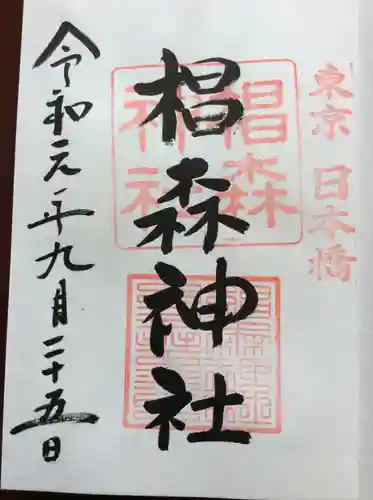 東京 日本橋
椙森神社
椙森神社
令和元年九月二十五日